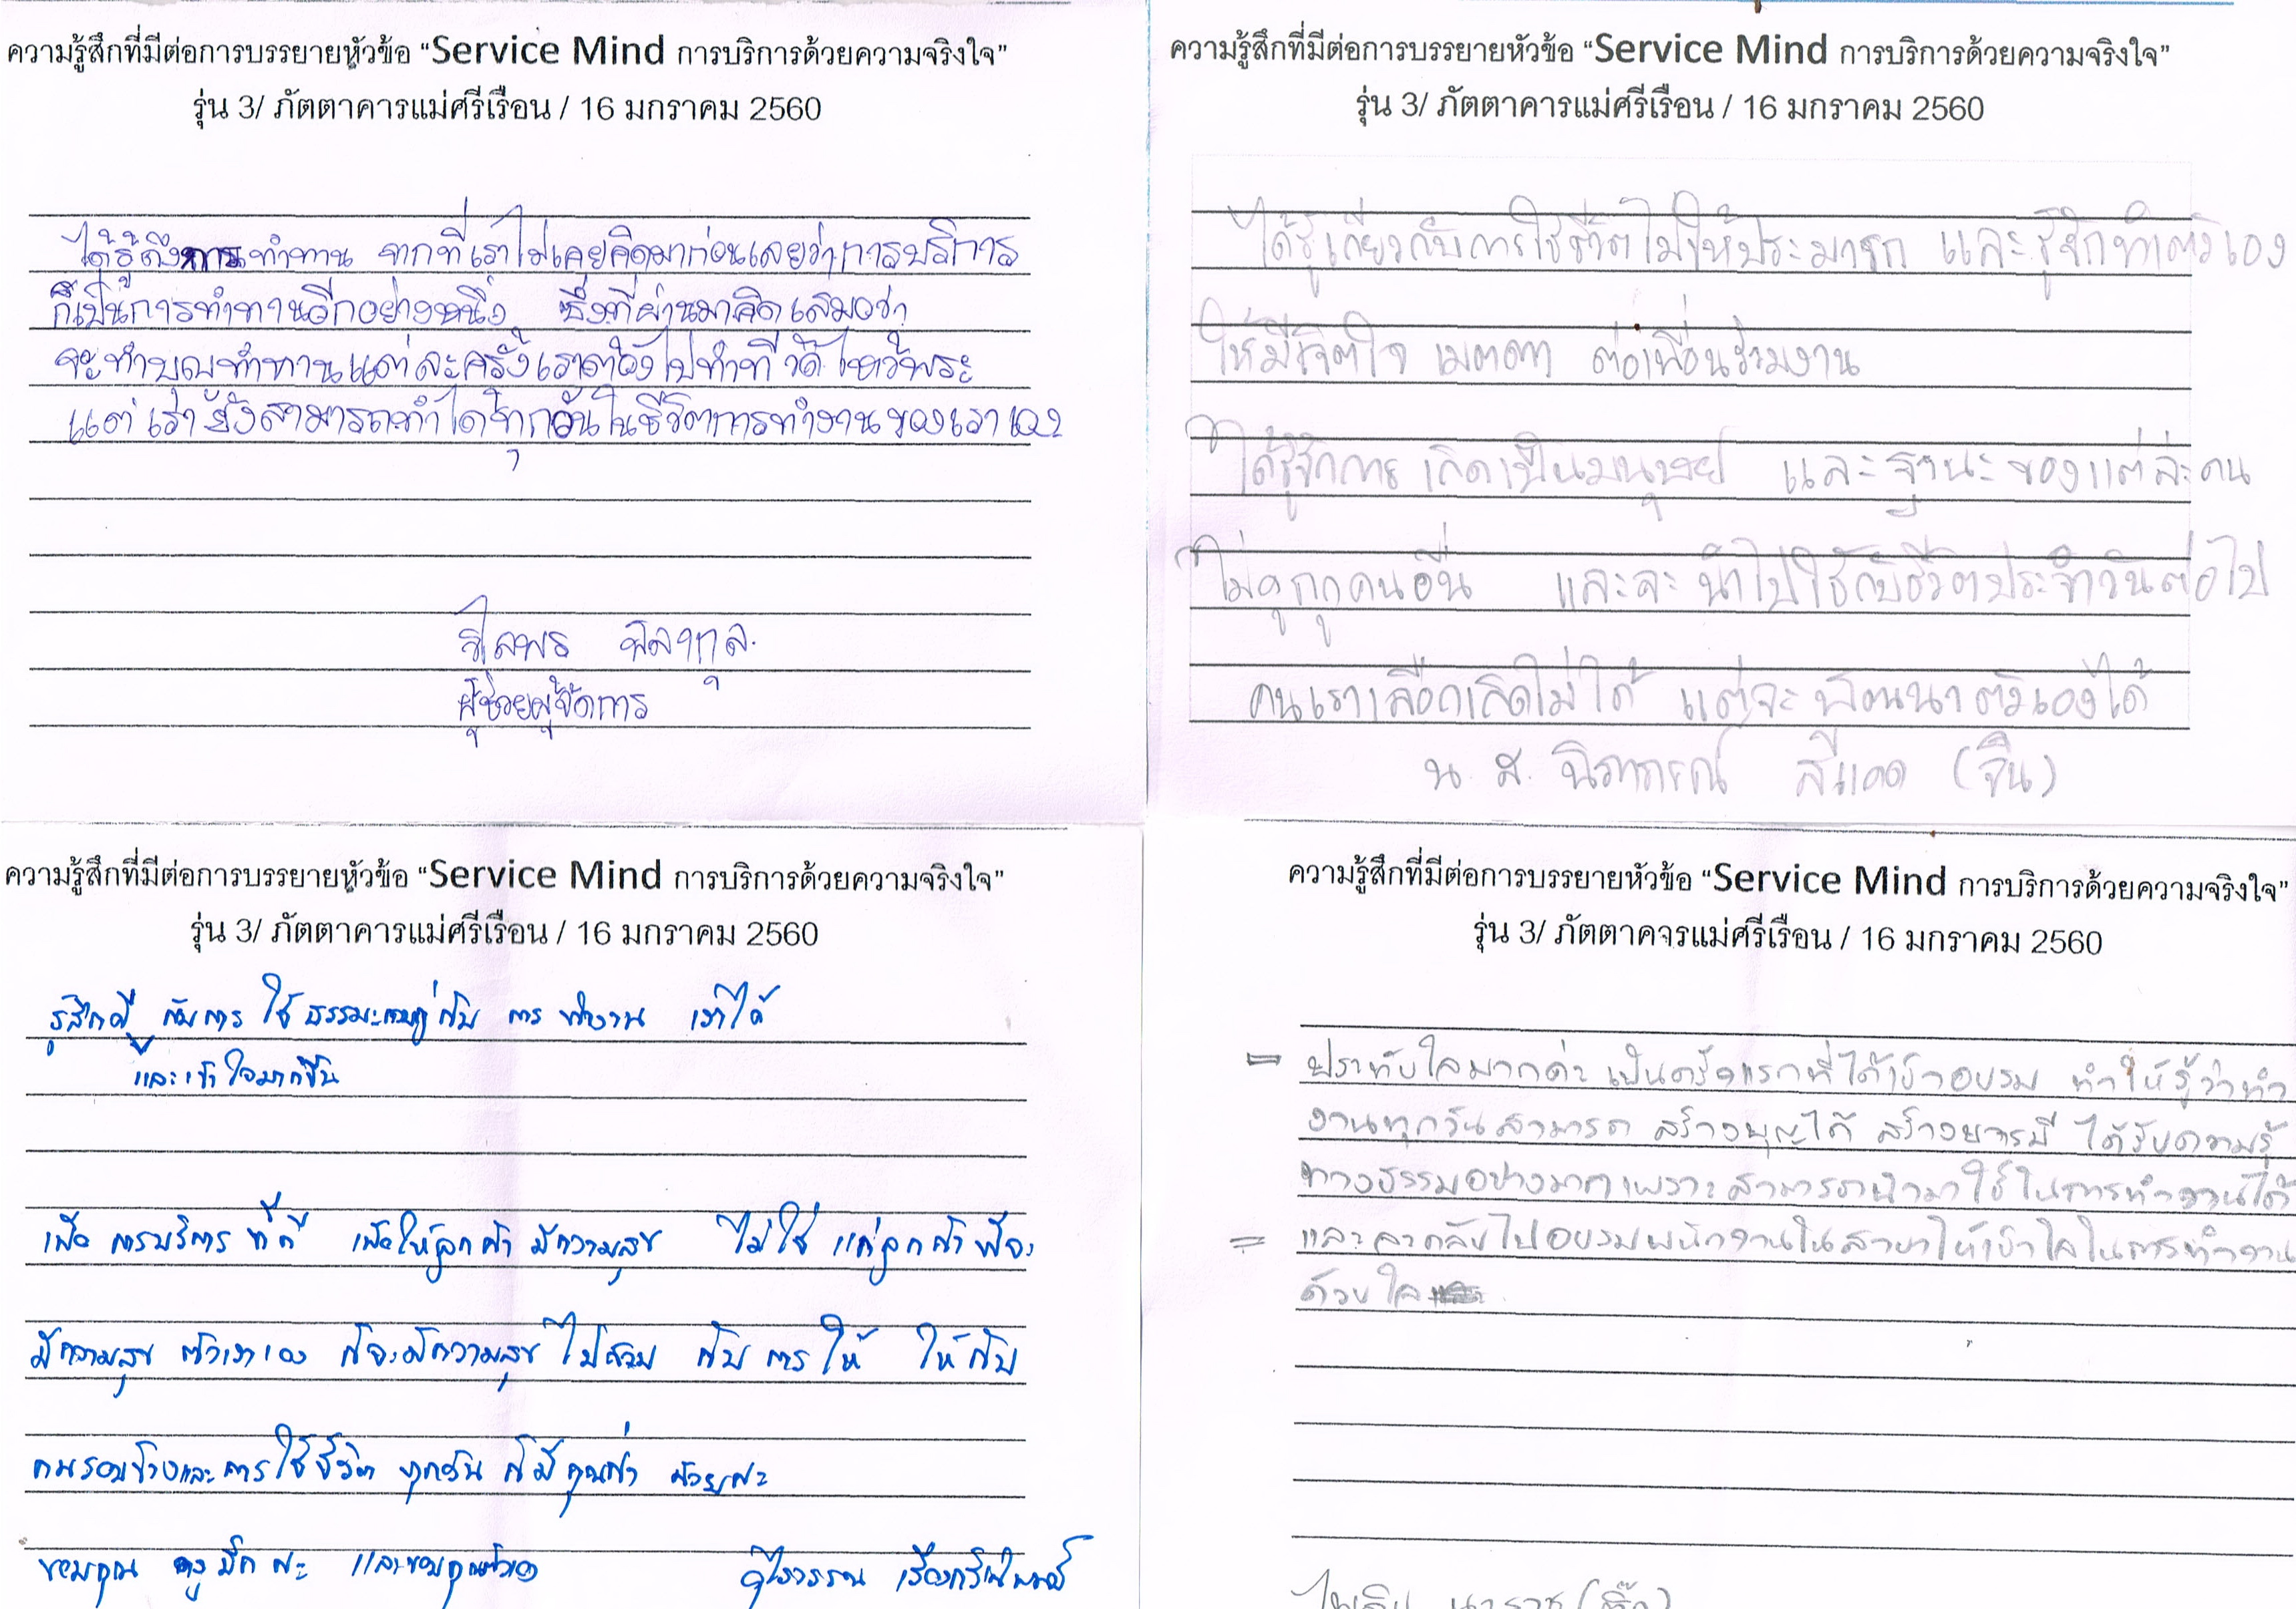 ความรู้สึกที่มีต่อการบรรยายหัวข้อ “Service Mind การบริการด้วยความจริงใจ”
รุ่น 3/ ภัตตาคารแม่ศรีเรือน / 16 มกราคม 2560
ได้รู้ถึงการทำทาน จากที่เราไม่เคยคิดมาก่อนเลยว่าการบริการ
ก็เป็นการทำทานอีกอย่างหนึ่ง ซึ่งที่ผ่านมาคิดเสมอว่า
จะทำบุญทำทานแต่ละครั้งเราต้องไปทำที่วัด ไหว้พระ
แต่เรายังสามารถทำได้ทุกวันในชีวิตการทำงานของเราเอง
ผู้ช่วยผู้จัดการ
ความรู้สึกที่มีต่อการบรรยายหัวข้อ “Service Mind การบริการด้วยความจริงใจ”
รุ่น 3/ ภัตตาคารแม่ศรีเรือน / 16 มกราคม 2560
ได้รู้เกี่ยวกับการใช้ชีวิตไม่ให้ประมาท และรู้จักทำตัวเอง
ให้มีจิตใจ เมตตา ต่อเพื่อนร่วมงาน
ได้รู้จักการเกิดเป็นมนุษย์ และฐานะของแต่ล่ะคน
ไม่ดูถูกคนอื่น และจะนำไปใช้กับชีวิตประจำวันต่อไป
คนเราเลือกเกิดไม่ได้ แต่จะพัฒนาตัวเองได้
น.ส. นิภาภรณ์ (จีน)
ความรู้สึกที่มีต่อการบรรยายหัวข้อ “Service Mind การบริการด้วยความจริงใจ”
รุ่น 3/ ภัตตาคารแม่ศรีเรือน / 16 มกราคม 2560
รู้สึกดี กับการใช้ธรรมะควบคู่กับ การทำงาน เข้าได้
และเข้าใจมากขึ้น
เพื่อการบริการที่ดี เพื่อให้ลูกค้ามีความสุข ไม่ใช่แค่ลูกค้าที่จะ
มีความสุข ตัวเราเอง ก็จะมีความสุขไปด้วย กับการให้ ให้กับ
คนรอบข้างและการใช้ชีวิต ทุกวัน ก็มีคุณค่า ด้วยค่ะ
ขอบคุณ ครู ค่ะ และขอบคุณตัวเอง
ความรู้สึกที่มีต่อการบรรยายหัวข้อ “Service Mind การบริการด้วยความจริงใจ”
รุ่น 3/ ภัตตาคจรแม่ศรีเรือน / 16 มกราคม 2560
- ปราทับใจมากค่ะ เป็นครั้งแรกที่ได้เข้าอบรม ทำให้รู้ว่าทำ
งานทุกวันสามารถ สร้างบุญได้ สร้างบารมี ได้รับความรู้
ทางธรรมอย่างมากเพราะสามารถนำมาใช้ในการทำงานได้
= และจะกลับไปอบรมพนักงานในสาขาให้เข้าใจในการทำงาน
ด้วยใจ